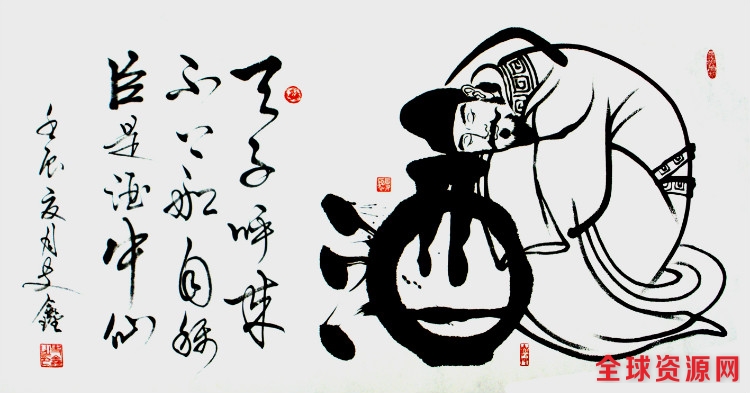 天子呼来
不上船自称
臣是酒中仙
壬辰夏月史鑫
全球资源网